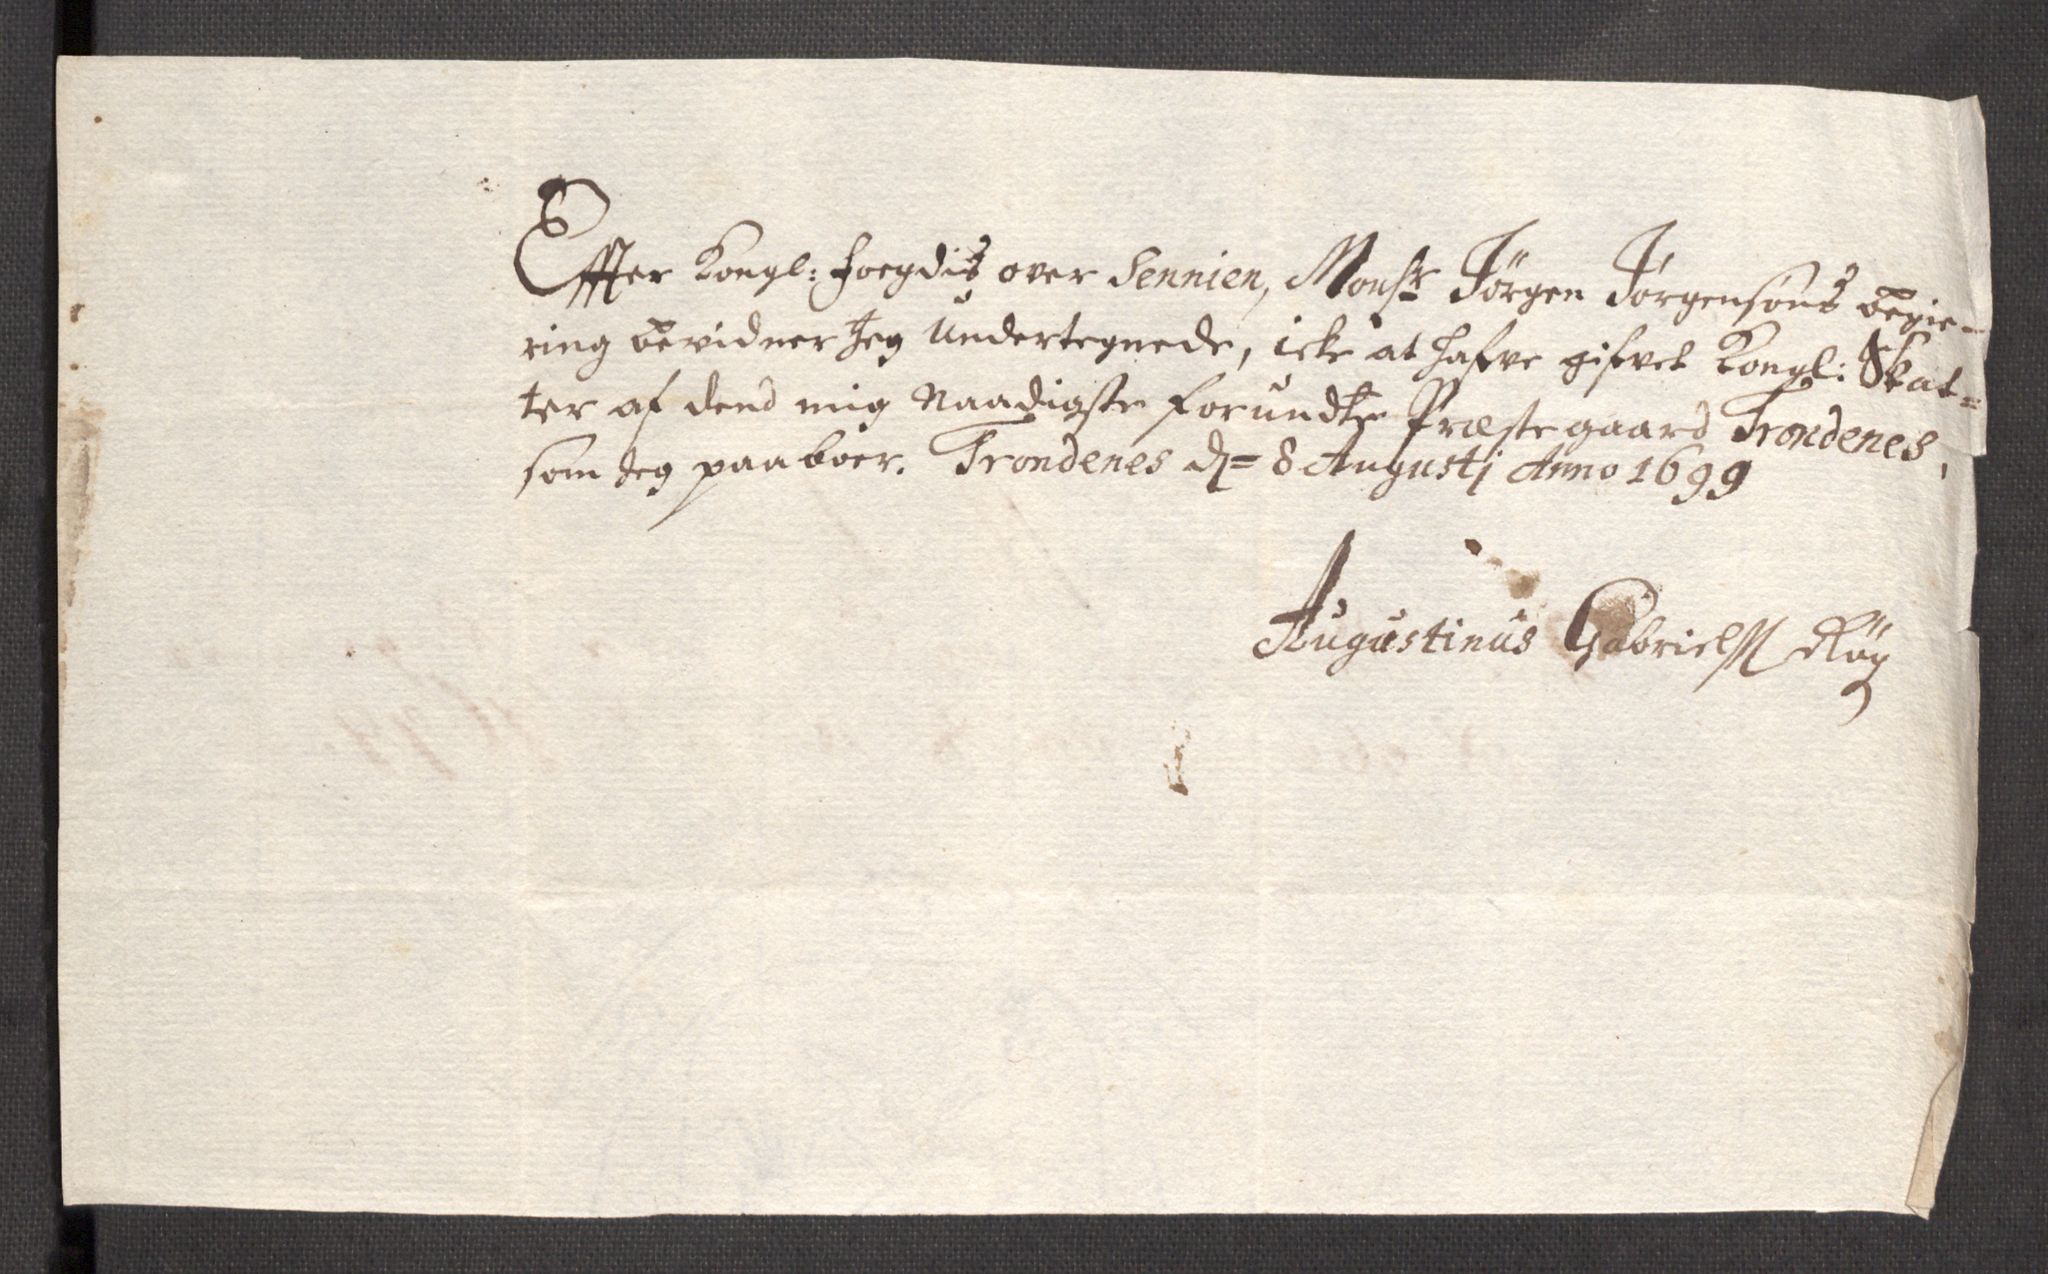 Effter Kongl: Foegdis over Sennien, Monsr Jörgen Jörgensøns begie-
ring bevidner Jeg Undertegnede, icke at hafve gifvet Kongl: Skat=
ter af dend mig Naadigste forundte Præstegaard Trondenes,
som Jeg paaboer. Trondenes d= 8 Augustj Anno 1699
Augustinus Gabriels Rög